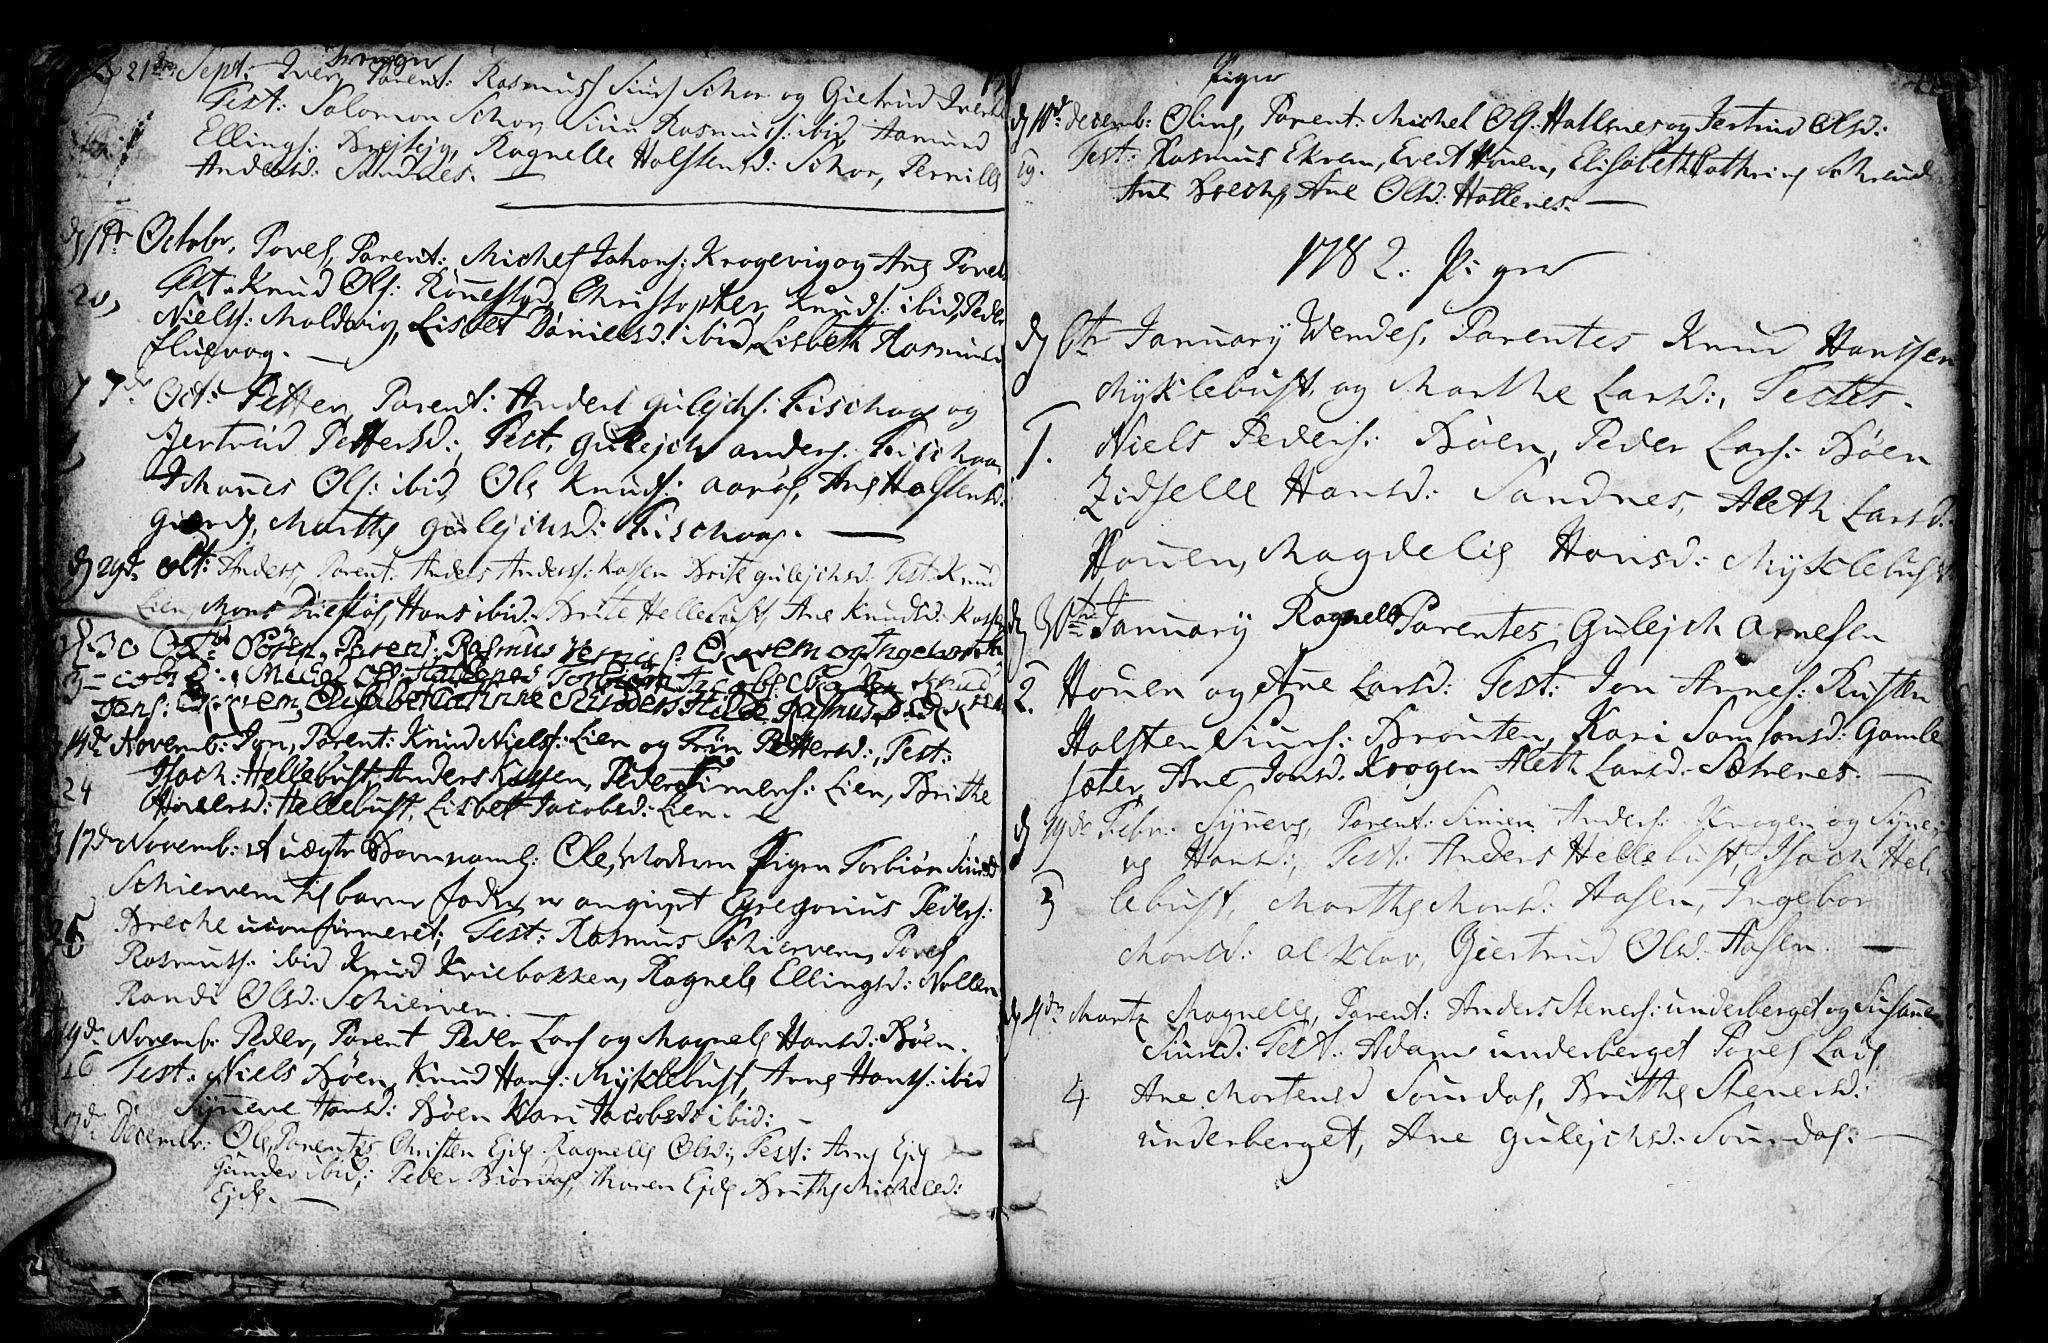 Drenger
21de Sept: Iver, Parent: Rasmuss Siurs Schor og Giertrud Iversd
Test: Salomon Schor, Siur Rasmuss: ibid, Aamund
Ellings: Brejtejg, Ragnelle Holstensd: Schor, Pernille
Andersd: Sandnes.
d 1ste October, Povel, Parent: Michel Johans: Krogevig og Ane Povels
20, Test: Knud Ols: Rönnestad, Christopher Knuds: ibid, Peder
Niels: Moldvig, Lisbet Danielsd: ibid, Lisbeth Rasmusd
Fluevog.
d 7de Oct: Petter, Parent: Anders Gulejchs: Fischaa og
Jertrud Pettersd: Test, Gulejch Anders: Fischaa,
Johannes Ols: ibid, Ole Knuds: Aarås, Ane Holstensd:
Giærde, Marthe Gulejchsd: Fischaa.
d 29de Oct: Anders Parent: Anders Anders: Kassen Brite Gulejchsd: Test: Knud
Lien, Mons, Hans ibid. Brite Hellebust, Ane Knudsd: Kassen
d. 30 Oct: Sören, Parent: Rasmus Jens: Ekrem og Ingeborg
Michel Ols: Hallenes Torbiörn Jacobs: Knud
Jens: Ekrem, Elisabet Catrine Rasmusd: Ekrem
14de Novemb: Jon, Parent: Knud Niels: Lien og Trön Pettersd:, Test:
24 Isach: Hellebust, Anders Kassen, Peder Simens: Lien, Brithe
Iversd: Hellebust, Lisbet Jacobsd: Lien.
d 17de Novemb: et uægte Barn naml: Ole, Moderen Pigen Torbiör Siursd
Schiervem til barne fader er angivet Gregorius Peders:
25 Breche uconfirmeret; Test: Rasmus Schiervem, Povel
Rasmuss: ibid Knud Kvilbakken, Ragnele Ellingsd: Nollen
Randi Olsd: Schiervem.
19de Novemb: Peder, Parent Peder Lars og Magnele Hansd: Böen.
26 Test: Niels Böen, Knud Hans: Myklebust, Arne Hans: ibid
Synneve Hansd: Böen Kari Jacobsd: ibid:
de December: Ole, Parentes Christen Ejde Ragnelle Olsd:, Test: Arne Ejde
Gunder ibid; Peder Biördal, Maren Ejde Brithe Michelsd:
Ejde.
Piger
d 10de: decemb: Oline, Parent: Michel Ols: Hallenes og Jertrud Olsd:
19. Test: Rasmus Ekrem, Evert Houen, Elisabeth Cathrine Schreud
Ane Breche, Ane Olsd: Hallenes.
1782. Piger
d 6te January Wendel, Parentes Knud Hanssen
Myklebust og Marthe Larsd:, Testes.
1. Niels Peders: Böen, Peder Lars: Böen
Zidselle Hansd: Sandnes, Aleth Larsd:
Houen, Magdelie Hansd: Myklebust
d 30te January Ragnelle Parentes Gulejch Arnesen
2. Houen og Ane Larsd: Test: Jon Arnes: Rusten
Holsten Siurs: Brouten, Kari Samsonsd: Gamle
sæter, Ane Jonsd: Krogen Aleth Larsd: Sætrenes.
d 19de Febr: Synneve, Parent: Simen Anders: Krogen og Synne
ve Hansd:, Test: Anders Hellebust, Isach Hel-
3 lebust, Marthe Monsd: Aasen, Ingebor
Monsd: Alklov, Giertrud Olsd: Aasen.
d 4de Martz Magnelle, Parent: Anders Steners: underberget og Susanne
Siursd: Test: Adam underberget Povel Lade
4 Ane Mortensd Sourdal, Brithe Stenersd:
underberget, Ane Gulejchsd: Sourdal.